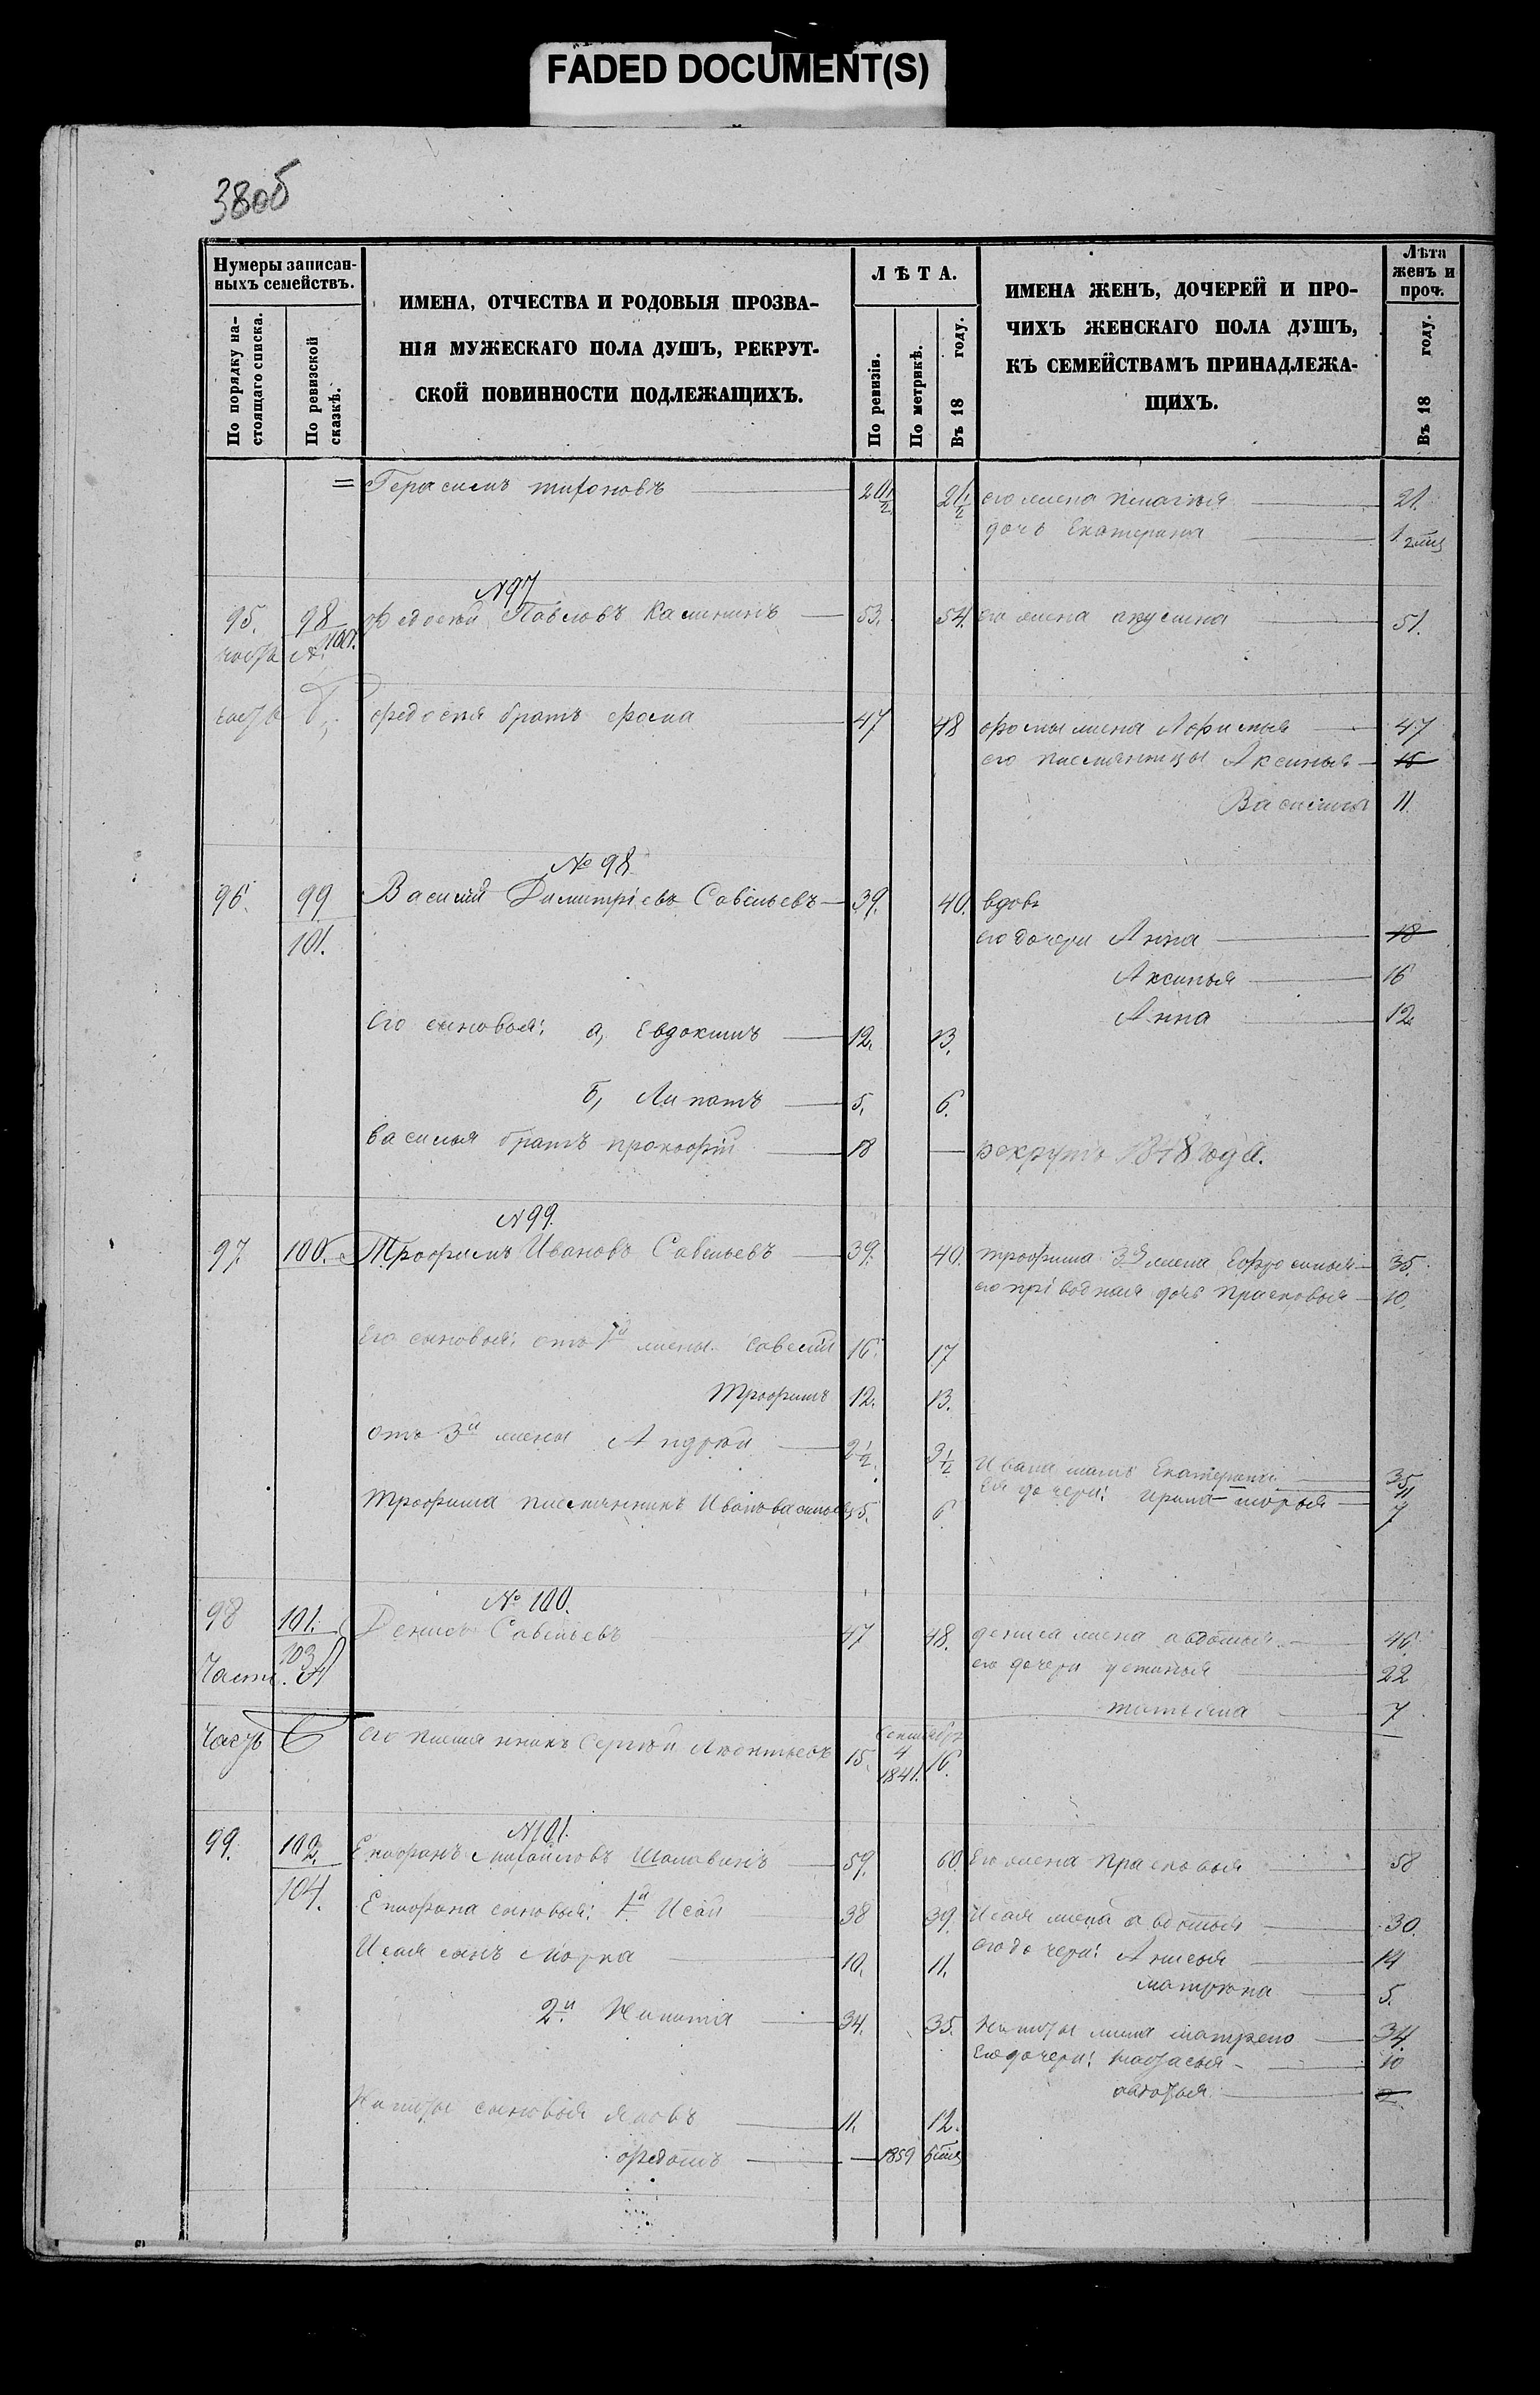 FADED DOCUMENT(S)
38об
Нумеры записан-
ныхъ семействъ.
По порядку на-
стоящаго списка.
По ревизской
сказкѣ.
ИМЕНА, ОТЧЕСТВА И РОДОВЫЯ ПРОЗВА-
НІЯ МУЖЕСКАГО ПОЛА ДУШЪ, РЕКРУТ-
СКОЙ ПОВИННОСТИ ПОДЛЕЖАЩИХЪ.
ЛѢТА.
По ревизіи.
По метрикѣ.
Въ 18 году.
ИМЕНА ЖЕНЪ, ДОЧЕРЕЙ И ПРО-
ЧИХЪ ЖЕНСКАГО ПОЛА ДУШЪ,
КЪ СЕМЕЙСТВАМЪ ПРИНАДЛЕЖА-
ЩИХЪ.
Лѣта
женъ и
проч.
Въ 18 году.
= Герасимъ тихоновъ 20 1/2 21 1/2 его жена пелагея 21.
дочь Екатерина 1
N 97
95. 98 Федосѣй Павловъ Калининъ 53. 54. его жена акулина 51.
часть А. 100.
часть Б, федосѣя братъ фома 47 48 фомы жена 47
его племянницы Аксинья 15
Василиса 11.
№ 98
96. 99 Василий Димитріевъ Савельевъ 39. 40. вдовъ
101. его дочери Анна 18
Аксинья 16
Анна 12.
Его сыновья: а, Евдокимъ 12. 13.
б, Липатъ 5. 6.
василья братъ прокофій 18 — рекрутъ 1848 года.
N 99.
97. 100. Трофимъ Ивановъ Савельевъ 39. 40. трофима 3я жена Ефросинья 35.
его приводная дочь Прасковья 10.
Его сыновья: отъ 1й жены савелій 16. 17
трофимъ 12. 13.
отъ 3й жены Андрей 2 1/2 3 1/2
Ивана мать Екатерина 35
Ея дочери: ирина 11
марья 7
трофима племянникъ Иванъ васильевъ 5. 6.
№ 100.
98 101. Денисъ Савельевъ 47 48. дениса жена авдотья 46.
103
Часть А его дочери устинья 22
татьяна 7
часть Б его племянникъ Сергѣй Леонтьевъ 15. сентября 4 1841. 16.
N 101.
99. 102. Епифанъ михайловъ Шалавинъ 59. 60. Его жена прасковья 58
104. Епифана сыновья: 1й Исай 38 39. Исая жена авдотья 30.
Исая сынъ марка 10. 11. его дочери: Анисья 14
матрона 5.
2й Никита 34. 35. Никиты жена матрена 34
Его дочери: настасья 10
авдотья 2
Никиты сыновья яковъ 11. 12.
федотъ — 1859 6